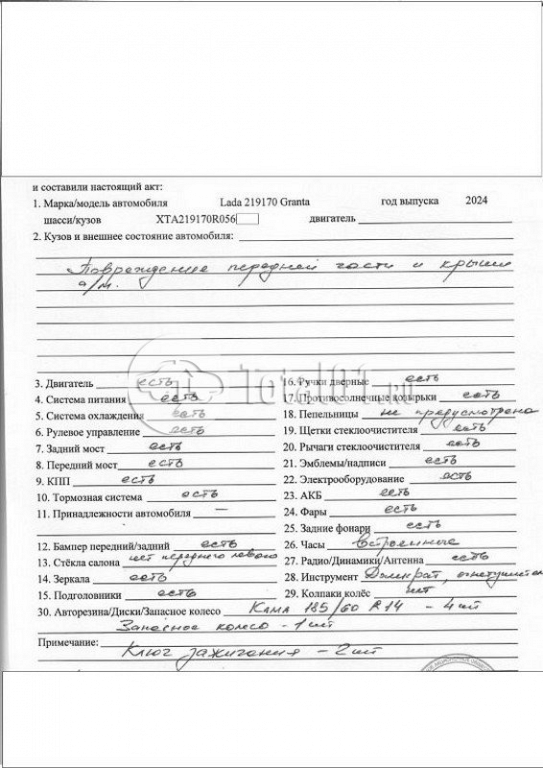 и составили настоящий акт:
1. Марка/модель автомобиля Lada 219170 Granta год выпуска 2024
шасси/кузов XTA219170R056 двигатель
2. Кузов и внешнее состояние автомобиля:
Повреждение передней части и крыши
а/м.
3. Двигатель есть 16. Ручки дверные есть
4. Система питания есть 17. Противосолнечные козырьки есть
5. Система охлаждения есть 18. Пепельницы не предусмотрена
6. Рулевое управление есть 19. Щетки стеклоочистителя есть
7. Задний мост есть 20. Рычаги стеклоочистителя есть
8. Передний мост есть 21. Эмблемы/надписи есть
9. КПП есть 22. Электрооборудование есть
10. Тормозная система есть 23. АКБ есть
11. Принадлежности автомобиля — 24. Фары есть
25. Задние фонари есть
12. Бампер передний/задний есть 26. Часы встроенные
13. Стёкла салона нет переднего левого 27. Радио/Динамики/Антенна есть
14. Зеркала есть 28. Инструмент Домкрат,
15. Подголовники есть 29. Колпаки колёс нет
30. Авторезина/Диски/Запасное колесо Кама 185/60 R14 – 4 шт
Запасное колесо – 1 шт
Примечание:
Ключ зажигания – 2 шт